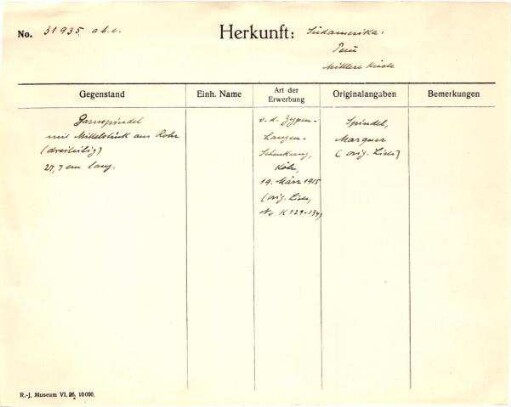 No. 31935 a b c. Herkunft: Südamerika.
Peru
Mittlere Küste
Gegenstand
Einh. Name
Art der
Erwerbung
Originalangaben
Bemerkungen
Garnspindel
mit Mittelstück aus Rohr
(dreiteilig)
27,7 cm lang.
v. d. Zypen-
Langen-
Schenkung,
Köln,
19. März 1915
(orig. Liste,
Nr. K
Spindel,
(orig. Liste)
R.-J. Museum VI.